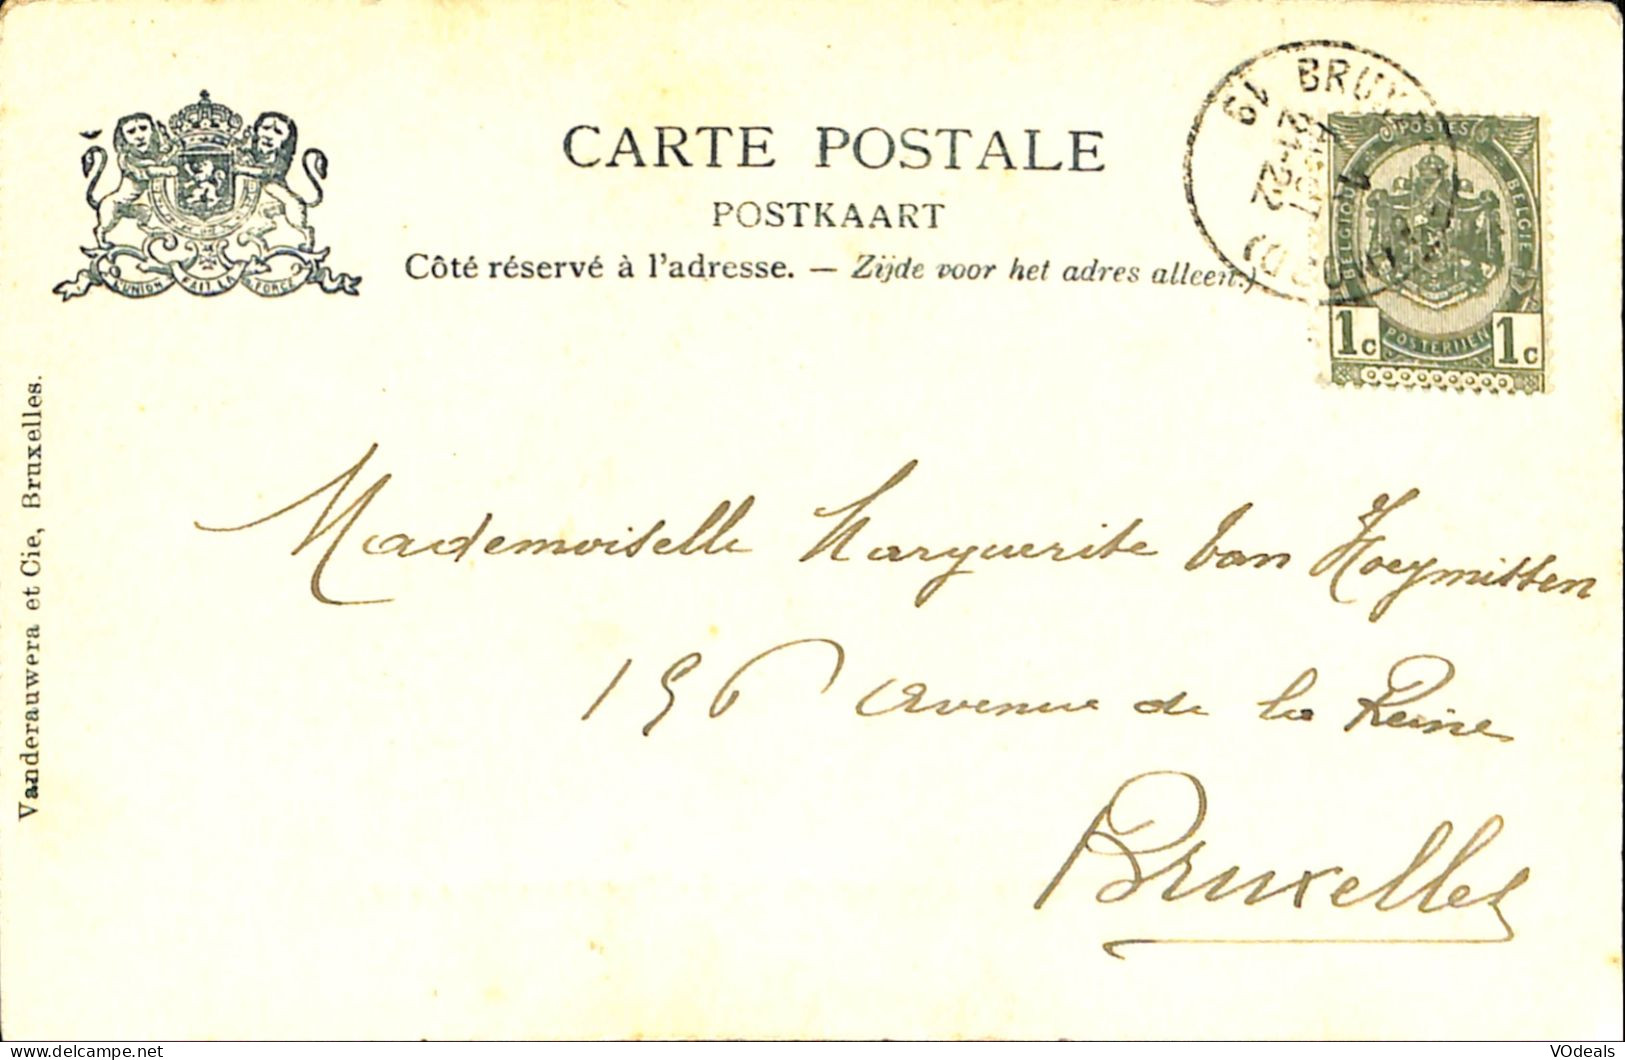 CARTE POSTALE
POSTKAART
Côté réservé à l'adresse. — Zijde voor het adres alleen.)
L'UNION FAIT LA FORCE
POSTES
BELGIQUE BELGIE
POSTERIJEN
1c 1c
Mademoiselle Marguerite Van Hoeymitten
156 Avenue de la Reine
Bruxelles
Vanderauwera et Cie, Bruxelles.
delcampe.net
VOdeals